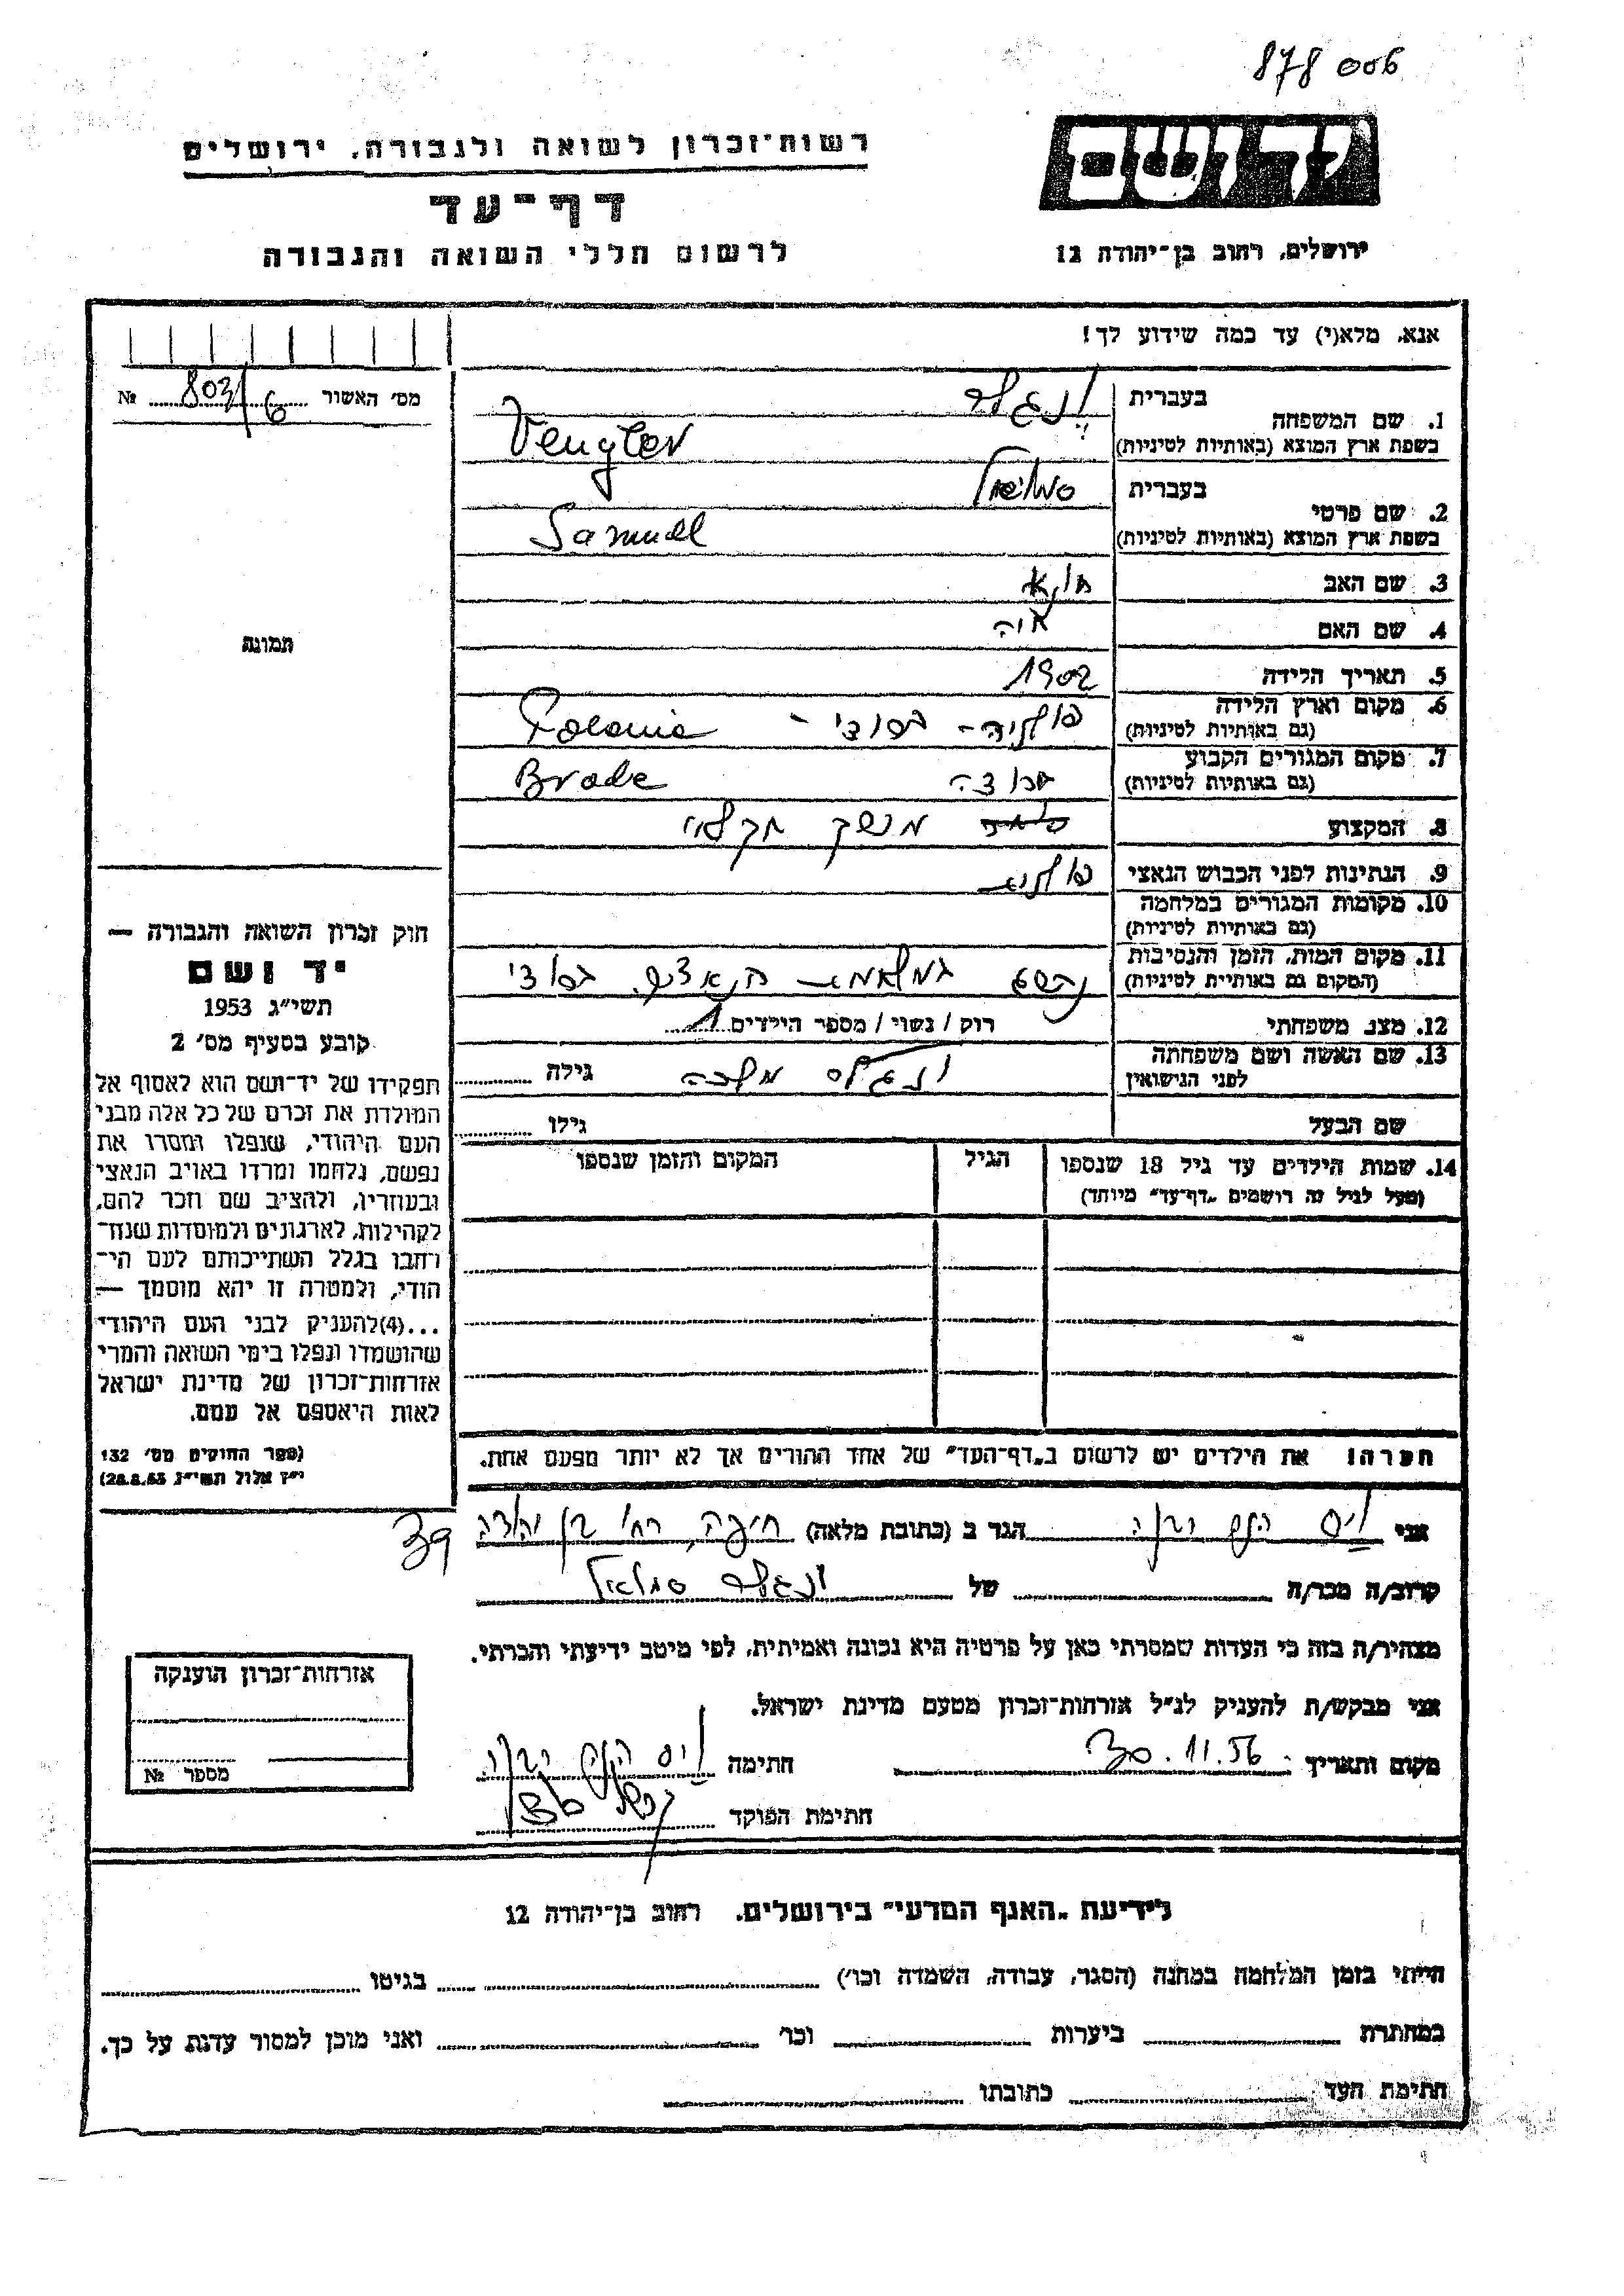 878 006
יד ושם
רשות־זכרון לשואה ולגבורה, ירושלים
דף־עד
לרשום חללי השואה והגבורה
ירושלים, רחוב בן־יהודה 12
אנא, מלא(י) עד כמה שידוע לך!
מס׳ האשור 803/6 №
בעברית ונגלר
1. שם המשפחה
בשפת ארץ המוצא (באותיות לטיניות) Vengler
בעברית סמואל
2. שם פרטי
בשפת ארץ המוצא (באותיות לטיניות) Samuel
3. שם האב
4. שם האם חוה
5. תאריך הלידה 1902
6. מקום וארץ הלידה פולניה - ברודי - Polonia
(גם באותיות לטיניות)
7. מקום המגורים הקבוע
(גם באותיות לטיניות) Brode
8. המקצוע משק חקלאי
9. הנתינות לפני הכבוש הנאצי פולנית
10. מקומות המגורים במלחמה
(גם באותיות לטיניות)
11. מקום המות, הזמן והנסיבות
(המקום גם באותיות לטיניות)
12. מצב משפחתי רוק / נשוי / מספר הילדים 1
13. שם האשה ושם משפחתה
לפני הנישואין ונגלר מלכה גילה
שם הבעל גילו
14. שמות הילדים עד גיל 18 שנספו הגיל המקום והזמן שנספו
(מעל לגיל זה רושמים „דף־עד״ מיוחד)
תמונה
חוק זכרון השואה והגבורה —
יד ושם
תשי״ג 1953
קובע בסעיף מס׳ 2
תפקידו של יד־ושם הוא לאסוף אל
המולדת את זכרם של כל אלה מבני
העם היהודי, שנפלו ומסרו את
נפשם, נלחמו ומרדו באויב הנאצי
ובעוזריו, ולהציב שם וזכר להם,
לקהילות, לארגונים ולמוסדות שנח־
רבו בגלל השתייכותם לעם הי־
הודי, ולמטרה זו יהא מוסמך —
...(4)להעניק לבני העם היהודי
שהושמדו ונפלו בימי השואה והמרי
אזרחות־זכרון של מדינת ישראל
לאות היאספם אל עמם.
(ספר החוקים מס׳ 132
י״ז אלול תשי״ג, 28.8.53)
הערה! את הילדים יש לרשום ב„דף־העד״ של אחד ההורים אך לא יותר מפעם אחת.
אני הגר ב (כתובת מלאה) חיפה, רח׳ בן יהודה 39
קרוב/ה מכר/ה של ונגלר סמואל
מצהיר/ה בזה כי העדות שמסרתי כאן על פרטיה היא נכונה ואמיתית, לפי מיטב ידיעתי והכרתי.
אני מבקש/ת להעניק לנ״ל אזרחות־זכרון מטעם מדינת ישראל.
מקום ותאריך 30.11.56 חתימה
חתימת הפוקד
אזרחות־זכרון הוענקה
מספר №
לידיעת „האגף המדעי״ בירושלים, רחוב בן־יהודה 12
הייתי בזמן המלחמה במחנה (הסגר, עבודה, השמדה וכו׳) בגיטו
במחתרת ביערות וכו׳ ואני מוכן למסור עדות על כך.
חתימת העד כתובתו